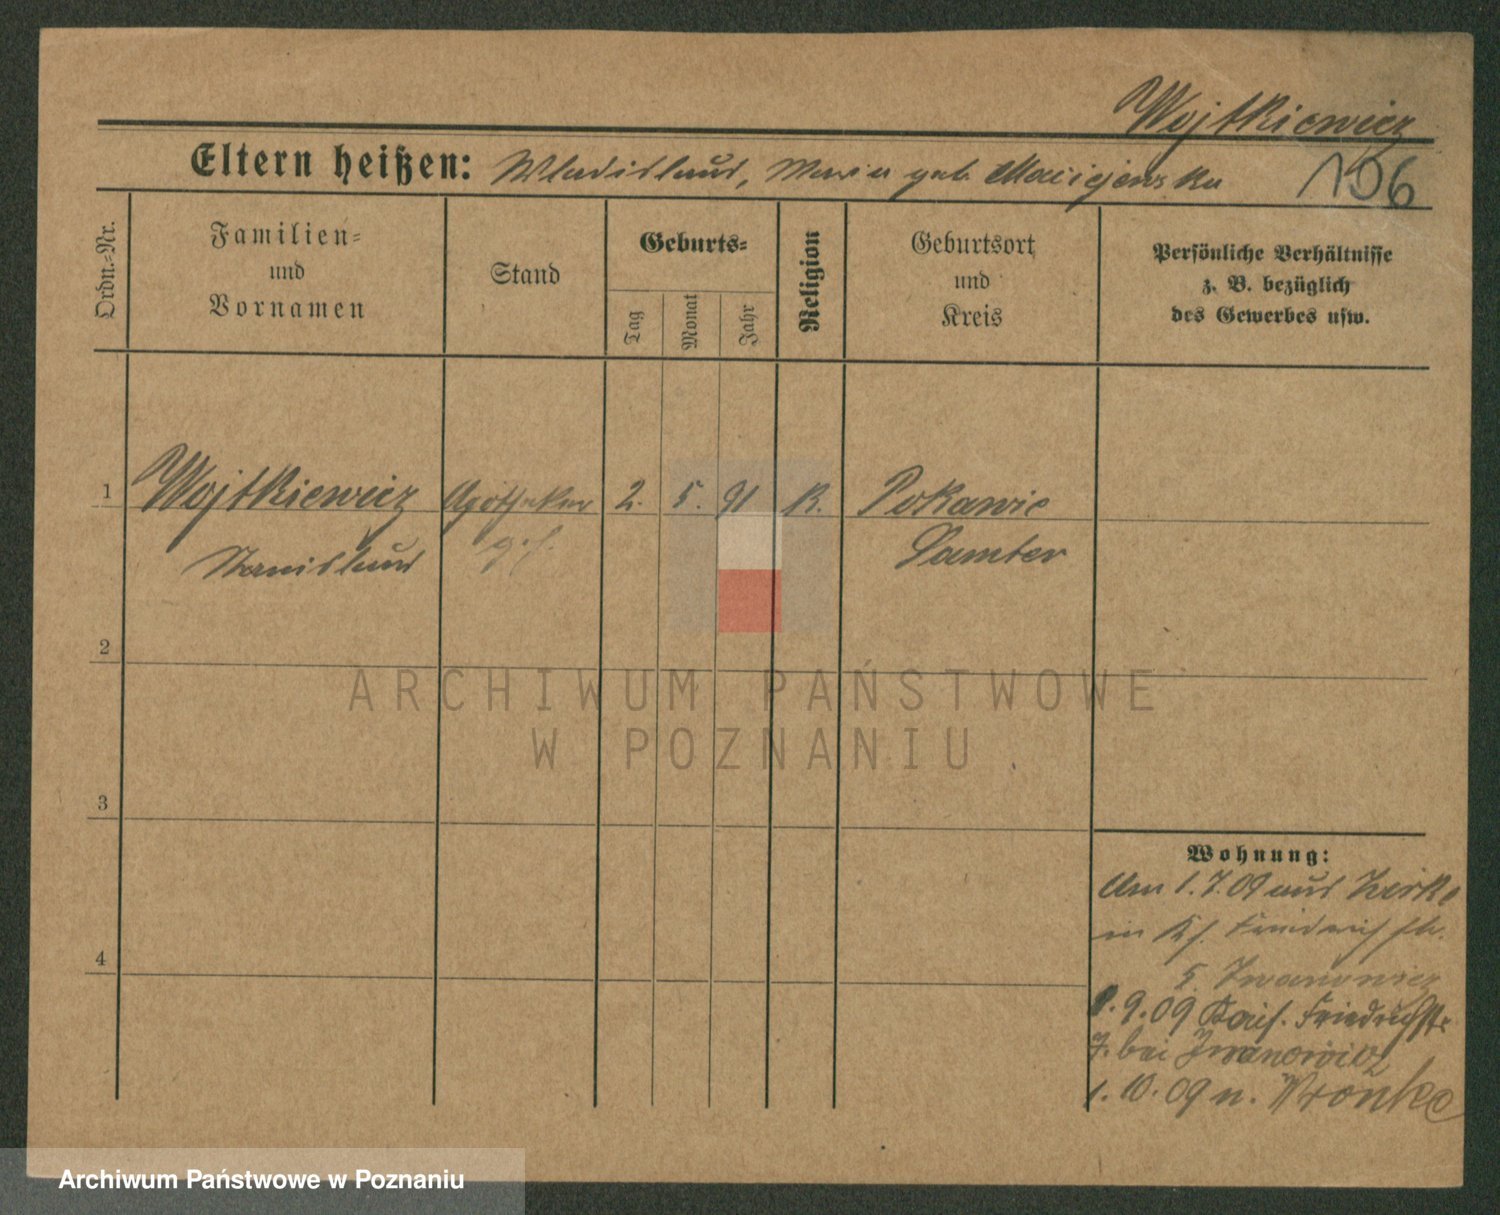 Wojtkiewicz
Eltern heißen: Wladislaus, Maria geb. Maciejewska 106
Ordn.-Nr.
Familien-
und
Vornamen
Stand
Geburts-
Tag
Monat
Jahr
Religion
Geburtsort
und
Kreis
Persönliche Verhältnisse
z. B. bezüglich
des Gewerbes usw.
1 Wojtkiewicz Apotheker 2. 5. 91 K.
Stanislaus
Samter
2
ARCHIWUM PAŃSTWOWE
W POZNANIU
3
4
Wohnung:
Am 1.7.09 aus Zirke
in Ks. Friedrichstr.
5 Iwanowicz
1.9.09 Kais. Friedrichstr.
7. bei Iwanowicz
1.10.09 n. Wronke
Archiwum Państwowe w Poznaniu